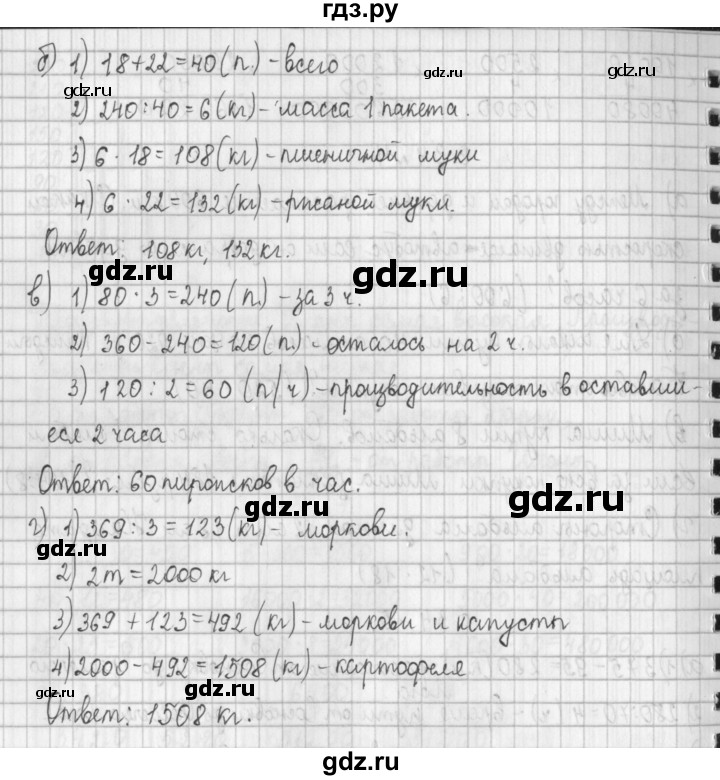 гдз.ру
б) 1) 18+22=40(п.) - всего
gdz.ru gdz.ru gdz.ru
2) 240:40=6(кг) - масса 1 пакета.
3) 6 · 18=108(кг) - пшеничной муки
4) 6 · 22=132(кг) - рисаной муки.
gdz.ru gdz.ru
Ответ: 108 кг, 132 кг.
gdz.ru gdz.ru
в) 1) 80 · 3=240(п.) - за 3 ч.
2) 360-240=120(п.) - осталось на 2 ч.
3) 120:2=60 (п/ч) - производительность в оставши-
еся 2 часа
Ответ: 60 пирожков в час.
gdz.ru gdz.ru
г) 1) 369:3=123(кг) - моркови.
gdz.ru gdz.ru
2) 2т=2000 кг
3) 369+123=492(кг) - моркови и капусты
4) 2000-492=1508(кг) - картофеля
gdz.ru gdz.ru gdz.ru
Ответ: 1508 кг.
gdz.ru